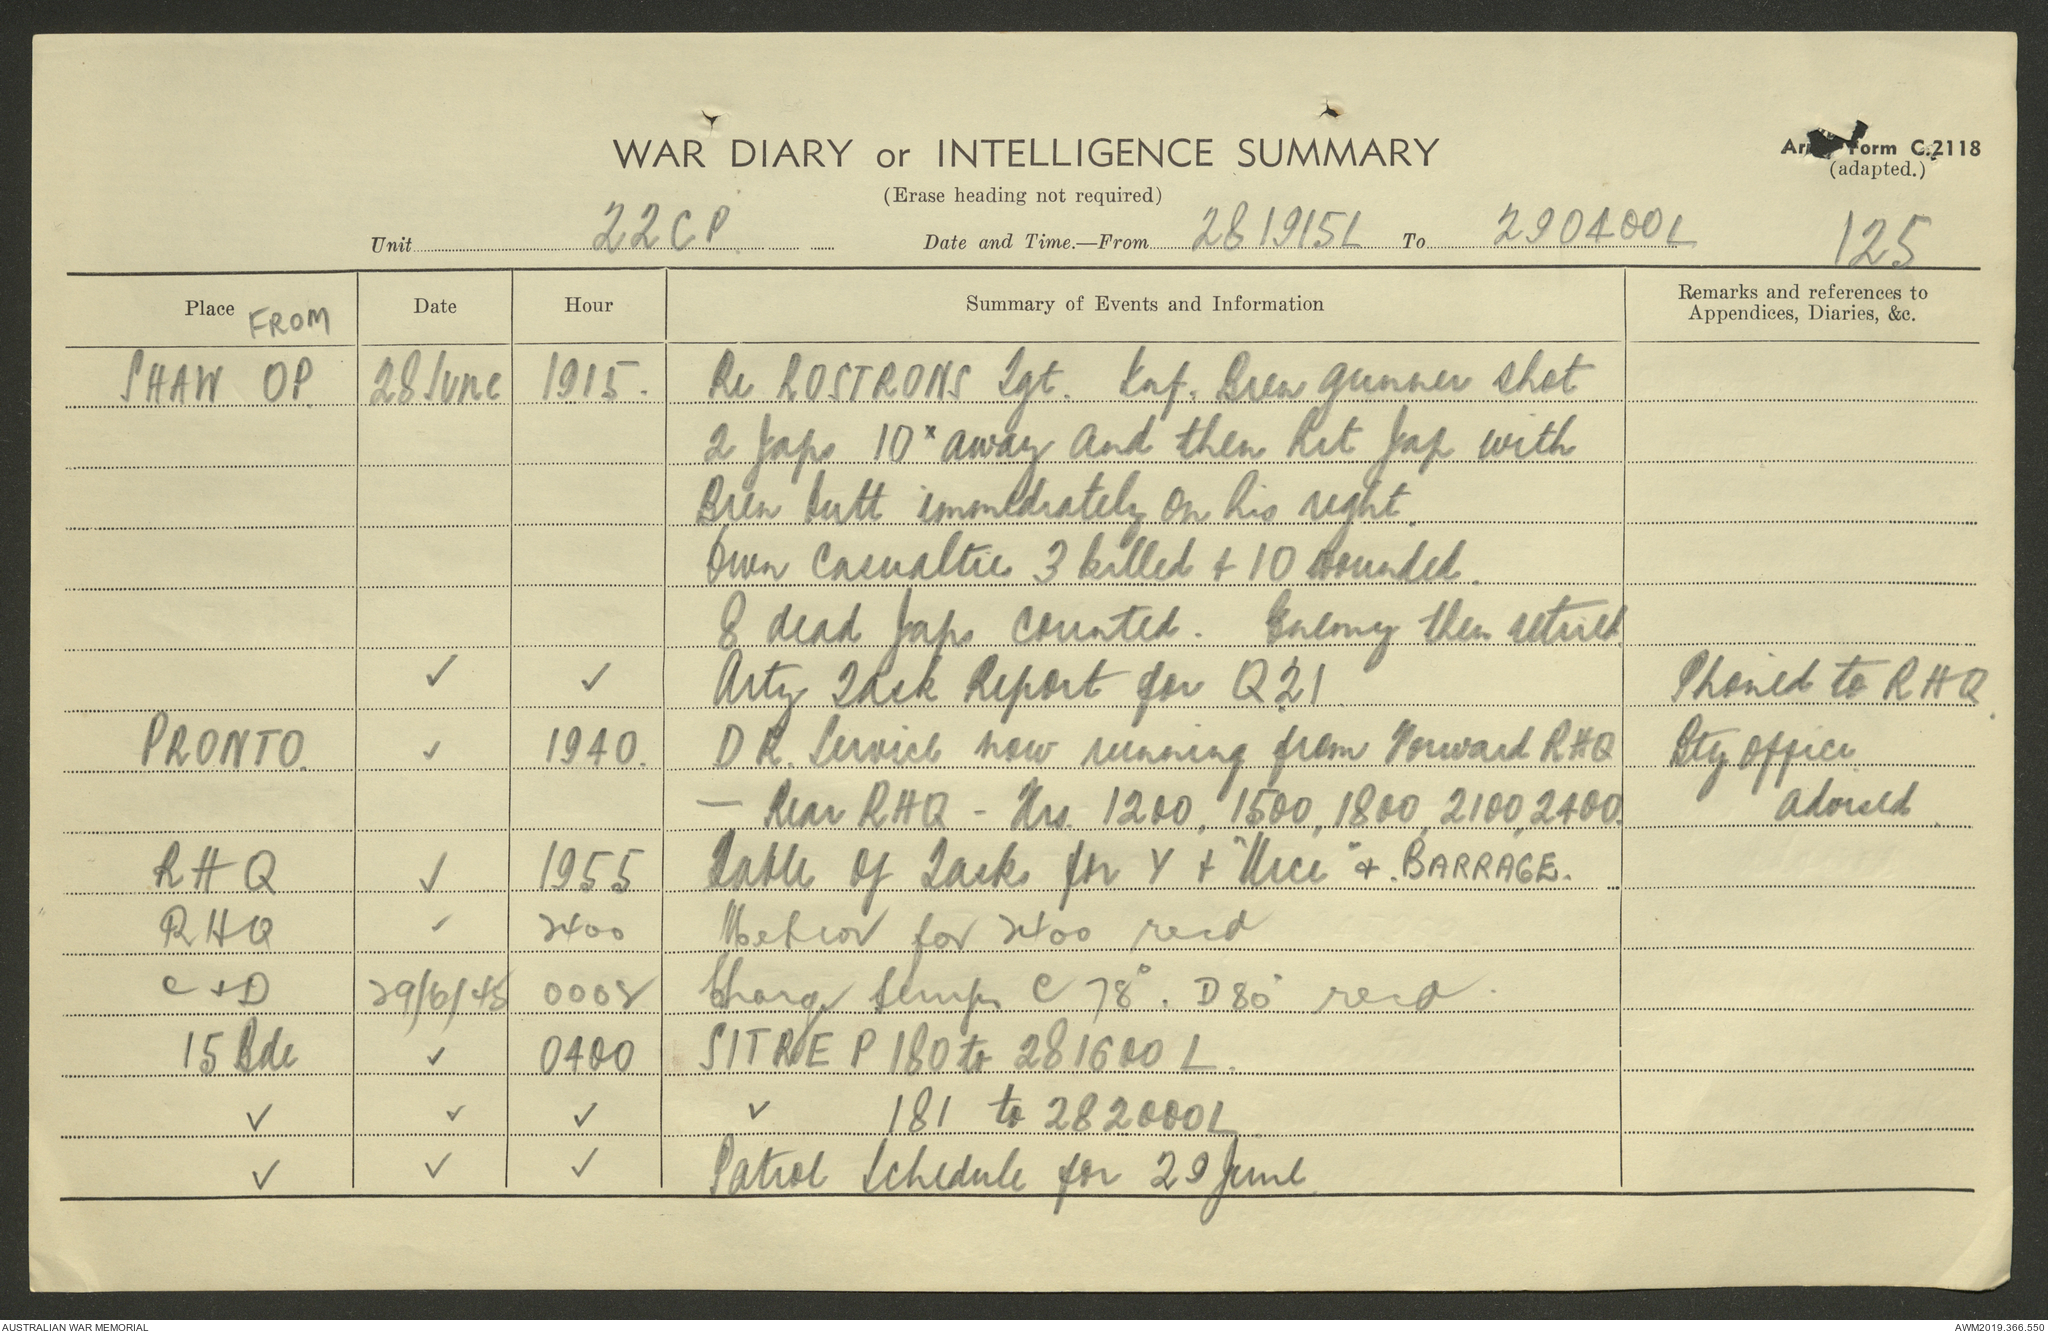 WAR DIARY or INTELLIGENCE SUMMARY
(Erase heading not required)
Army Form C.2118
(adapted.)
Unit 22 CP. Date and Time.—From 281915L To 290400L 125
Place FROM Date Hour Summary of Events and Information Remarks and references to Appendices, Diaries, &c.
SHAW OP. 28 June 1915. Re ROSTRONS Inf. Bren gunner shot
2 Japs 10ˣ away and then hit Jap with
Bren butt immediately on his right.
Own Casualties 3 killed + 10 wounded.
8 dead Japs counted. Enemy then retired
✓ ✓ Arty Task Report for Q21 Phoned to RHQ.
PRONTO. ✓ 1940. D R. Service now running from Forward RHQ Bty office
— Rear RHQ - Hrs. 1200, 1500, 1800, 2100, 2400. advised.
RHQ ✓ 1955 Table of Tasks for Y + " " + BARRAGE.
RHQ ✓ 2400 Meteor for 2400 recd
C + D 29/6/45 0005 Charge temps C 78°. D 80° recd.
15 Bde ✓ 0400 SITREP 180 to 281600L.
✓ ✓ ✓ ✓ 181 to 282000L.
✓ ✓ ✓ Patrol Schedule for 29 June.
AUSTRALIAN WAR MEMORIAL AWM2019.366.550